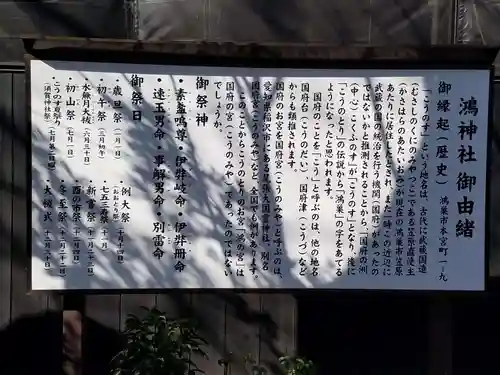 鴻神社御由緒
鴻巣市本宮町一ー九
御縁起(歴史)
「こうのす」という地名は、古代に武蔵国造
(むさしのくにのみやつこ)である笠原直使主
(かさはらのあたいおみ)が現在の鴻巣市笠原
あたりに居住したとされ、また一時この近辺に
武蔵の国の統治を行う機関(国府)があったの
ではないかと推測されることから、「国府の洲
(中心)こくふのす」が「こうのす」となり、後に
「こうのとり」の伝説から「鴻巣」の字をあてる
ようになったと思われます。
国府のことを「こう」と呼ぶのは、他の地名
国府台(こうのだい)、国府津(こうづ)など
からも類推されます。
国府のお宮を国府宮(こうのみや)と呼ぶのは、
愛知県稲沢市にある尾張大国霊神社、別名
国府宮(こうのみや)など、全国でも例があります。
このことからこうのとりのお宮(鴻の宮)は
国府の宮(こうのみや)、であったのではない
でしょうか。
御祭神
・素盞嗚尊・伊弉岐命・伊弉冊命
・速玉男命・事解男命・別雷命
御祭日
・歳旦祭(一月一日)
・初午祭(三月初午)
・水無月大祓(六月三十日)
・初山祭(七月一日)
・こうのす夏祭り(七月第二日曜)
(須賀神社祭)
・例大祭(十月十四日)
(おおとり祭)
・七五三祝(十一月)
・新嘗祭(十一月二十三日)
・酉の市祭(十二月四日)
・冬至祭(十二月二十二日)
・大祓式(十二月三十日)